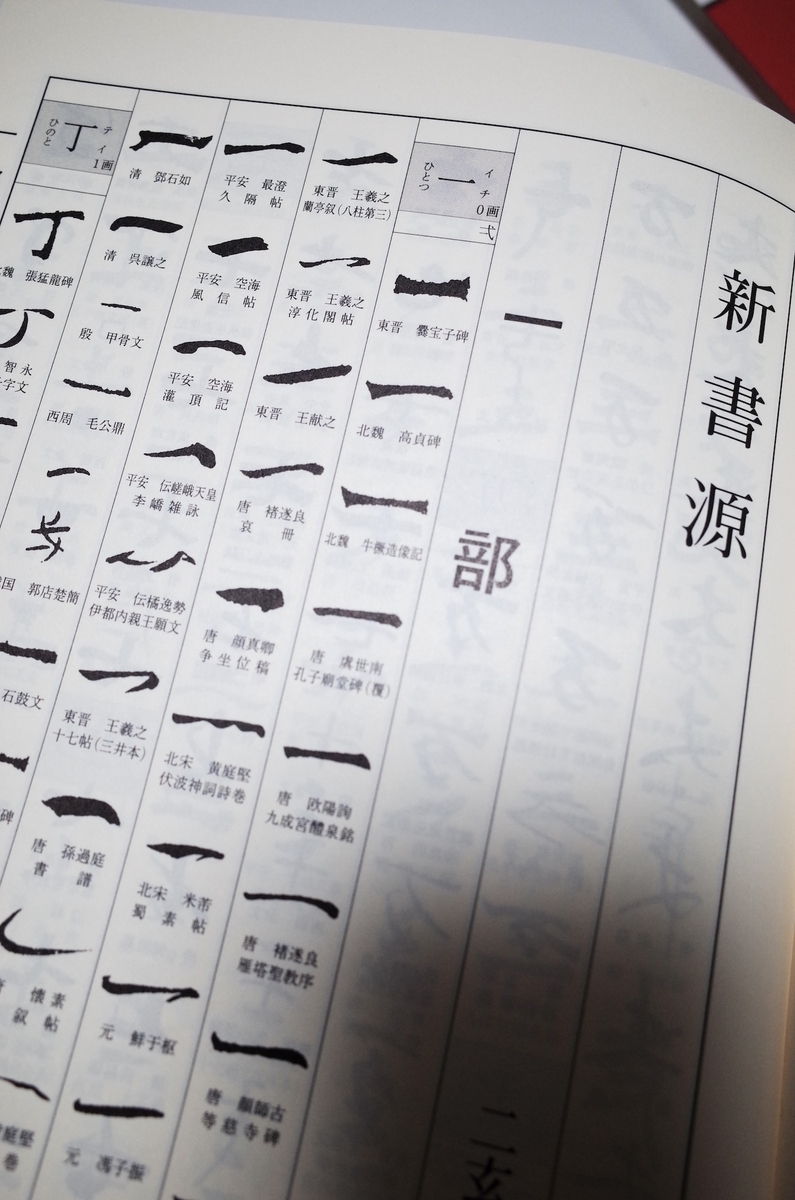 新書源
一部
二玄
イチ
一
ひとつ
0画
弌
東晋 爨宝子碑
北魏 高貞碑
北魏 牛橛造像記
唐 虞世南
孔子廟堂碑(覆)
唐 欧陽詢
九成宮醴泉銘
唐 褚遂良
雁塔聖教序
唐 顔師古
等慈寺碑
東晋 王羲之
蘭亭叙(八柱第三)
東晋 王羲之
淳化閣帖
東晋 王献之
唐 褚遂良
哀冊
唐 顔真卿
争坐位稿
北宋 黄庭堅
伏波神詞詩巻
北宋 米芾
蜀素帖
元 鮮于枢
元 馮子振
平安 最澄
久隔帖
平安 空海
風信帖
平安 空海
灌頂記
平安 伝嵯峨天皇
李嶠雑詠
平安 伝橘逸勢
伊都内親王願文
東晋 王羲之
十七帖(三井本)
唐 孫過庭
書譜
懐素
叙帖
庭堅
巻
清 鄧石如
清 呉譲之
殷 甲骨文
西周 毛公鼎
国 郭店楚簡
石鼓文
碑
テイ
丁
ひのと
1画
丁
魏 張猛龍碑
智永
字文